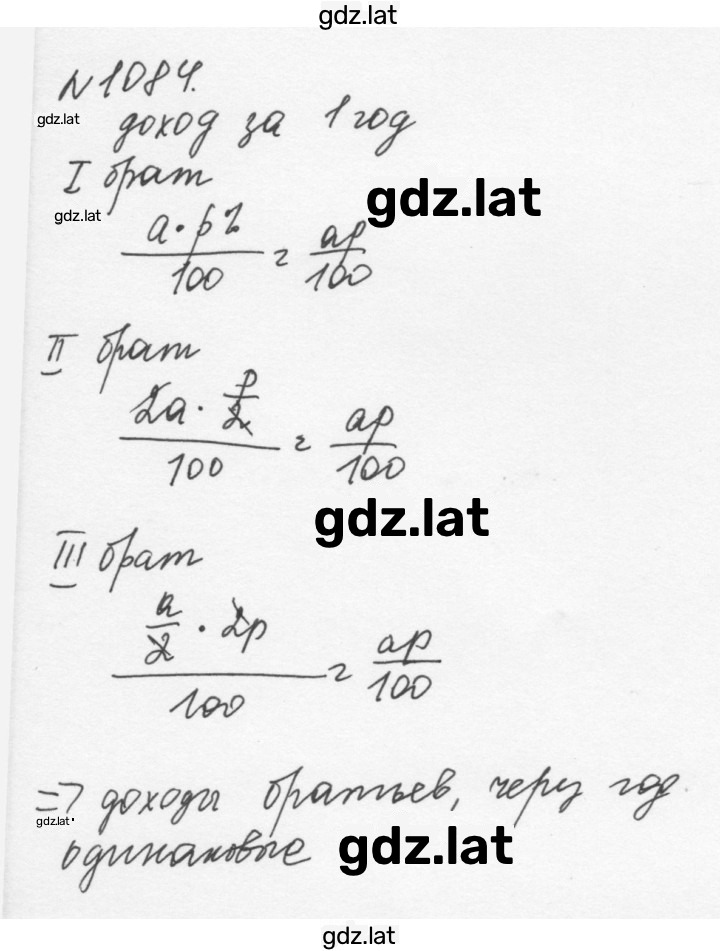 gdz.lat
№1084.
gdz.lat
доход за 1 год
I брат
gdz.lat
gdz.lat
a · p% / 100 = ap / 100
II брат
2a · p/2 / 100 = ap / 100
gdz.lat
III брат
a/2 · 2p / 100 = ap / 100
=> доходы братьев, через год
gdz.lat
одинаковые
gdz.lat
gdz.lat